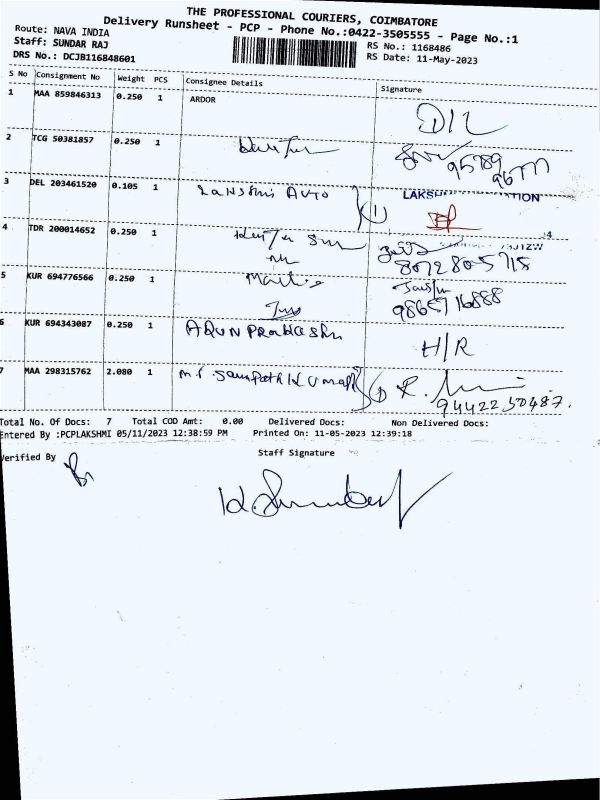 THE PROFESSIONAL COURIERS, COIMBATORE
Delivery Runsheet - PCP - Phone No.:0422-3505555 - Page No.:1
Route: NAVA INDIA
Staff: SUNDAR RAJ
DRS No.: DCJB116848601
RS No.: 1168486
RS Date: 11-May-2023
S No Consignment No Weight PCS Consignee Details Signature
1 MAA 859846313 0.250 1 ARDOR D/L
2 TCG 50381857 0.250 1
3 DEL 203461520 0.105 1 Lakshmi AUTO
LAKSH TION
4 TDR 200014652 0.250 1
8072805718
5 KUR 694776566 0.250 1
9865716888
6 KUR 694343087 0.250 1 ARUN PRAKASH H/R
7 MAA 298315762 2.080 1 Sampath Kumar R.
9442250487.
Total No. Of Docs: 7 Total COD Amt: 0.00 Delivered Docs: Non Delivered Docs:
Entered By :PCPLAKSHMI 05/11/2023 12:38:59 PM Printed On: 11-05-2023 12:39:18
Verified By Staff Signature